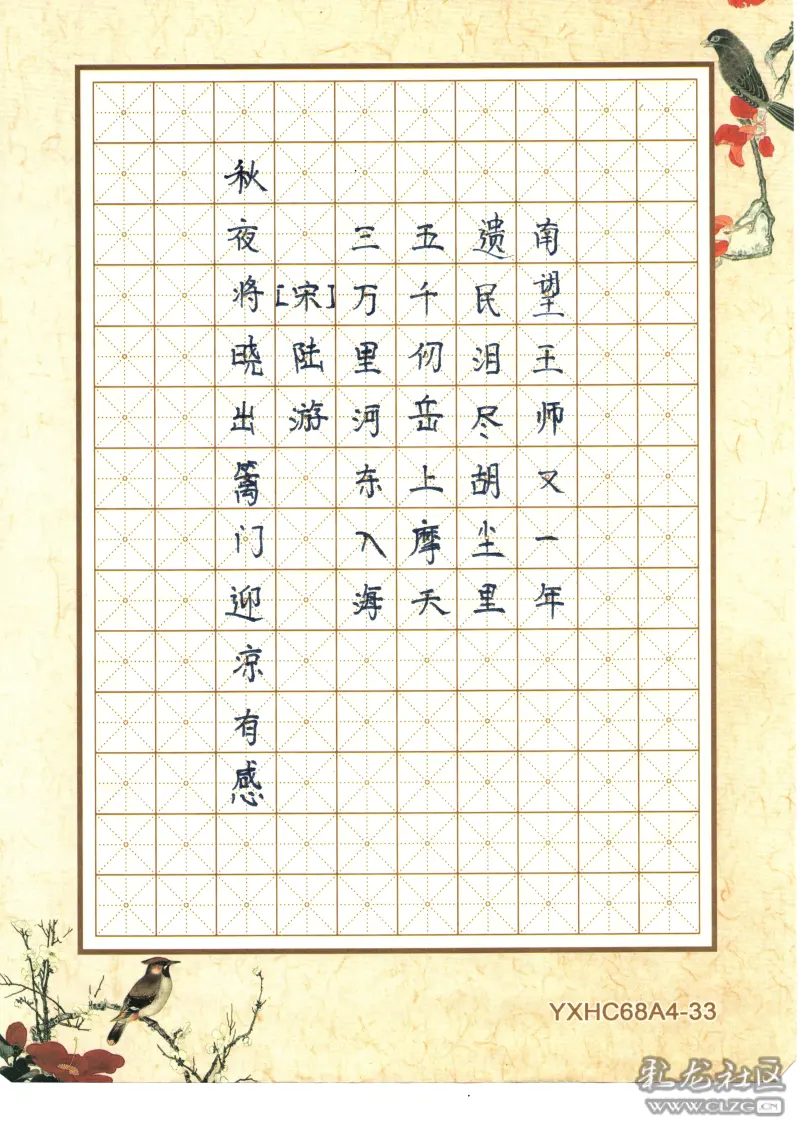 秋夜将晓出篱门迎凉有感
[宋]陆游
三万里河东入海
五千仞岳上摩天
遗民泪尽胡尘里
南望王师又一年
YXHC68A4-33
礼龙社区
www.CLZG.CN